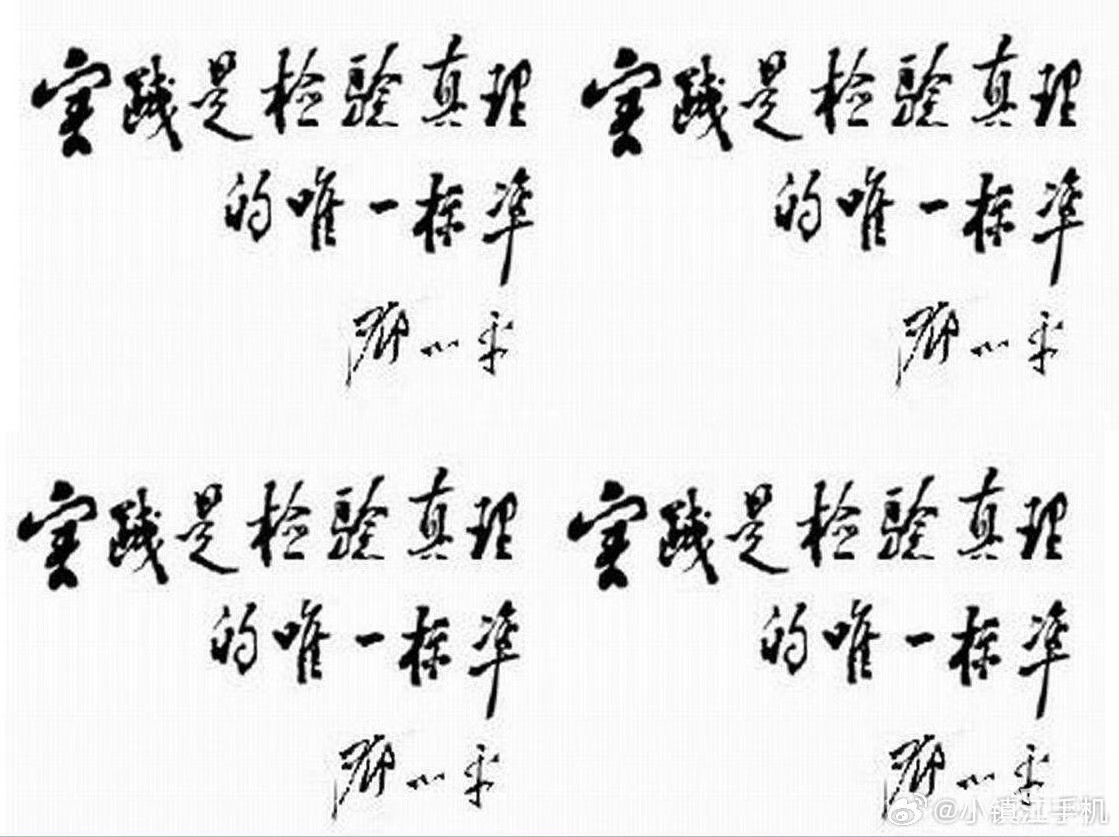 实践是检验真理
的唯一标准
邓小平
实践是检验真理
的唯一标准
邓小平
实践是检验真理
的唯一标准
邓小平
实践是检验真理
的唯一标准
邓小平
@小镇江手机